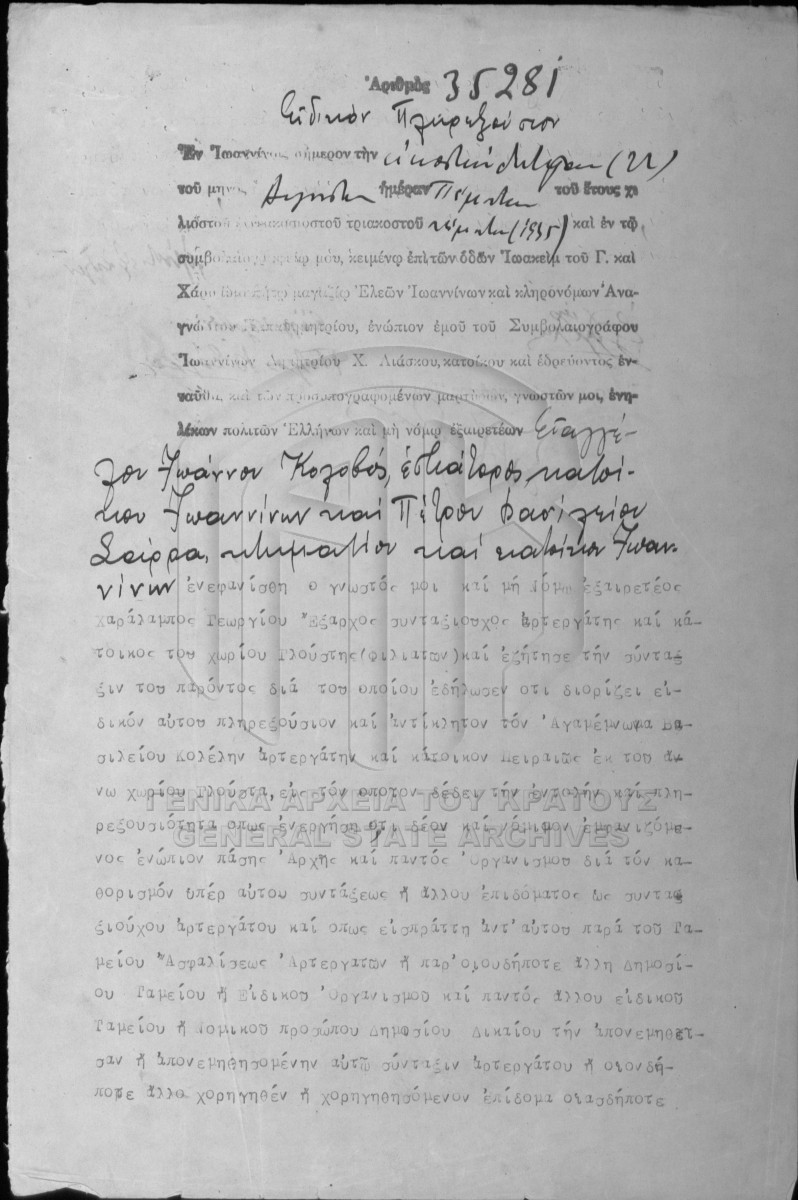 Ἀριθμὸς 35281
Εἰδικὸν Πληρεξούσιον
Ἐν Ἰωαννίνοις σήμερον τὴν εἰκοστὴν δευτέραν (22)
τοῦ μηνὸς Αὐγούστου ἡμέραν Πέμπτην τοῦ ἔτους χι
λιοστοῦ ἐννεακοσιοστοῦ τριακοστοῦ πέμπτου (1935) καὶ ἐν τῷ
συμβολαιογραφείῳ μου, κειμένῳ ἐπὶ τῶν ὁδῶν Ἰωακεὶμ τοῦ Γ. καὶ
μαγαζίῳ Ἐλεῶν Ἰωαννίνων καὶ κληρονόμων Ἀνα-
γνώστου Παπαδημητρίου, ἐνώπιον ἐμοῦ τοῦ Συμβολαιογράφου
Ἰωαννίνων Δημητρίου Χ. Λιάσκου, κατοίκου καὶ ἑδρεύοντος ἐν-
ταῦθα, καὶ τῶν προσυπογραφομένων μαρτύρων, γνωστῶν μοι, ἐνη-
λίκων πολιτῶν Ἑλλήνων καὶ μὴ νόμῳ ἐξαιρετέων Εὐαγγέ-
λου Ἰωάννου Κολοβός, ἑστιάτορος, κατοί-
κου Ἰωαννίνων καὶ Πέτρου Βασιλείου
κτηματίου καὶ κατοίκου Ἰωαν-
νίνων ἐνεφανίσθη ο γνωστός μοι καί μή Νόμῳ ἐξαιρετέος
Χαράλαμπος Γεωργίου Ἔξαρχος συνταξιουχος ἀρτεργάτης καί κά-
τοικος του χωρίου Πλούστης(φιλιατῶν)καί εζήτησε τήν σύντα
ξιν του παρόντος διά του οποίου ἐδήλωσεν οτι διορίζει εἰ-
δικόν αὐτου πληρεξούσιον καί ἀντίκλητον τόν Ἀγαμέμνωνα Βα-
σιλείου Κολέλην ἀρτεργάτην καί κάτοικον Πειραιῶς ἐκ του ἄν
νω χωρίου Πλούστα,εἰς τόν οποιον δέδει τήν ἐντολήν καί πλη-
ρεξουσιότητα οπως ἐνεργήση οτι δέον καί νόμιμον ἐμφανιζόμε-
νος ἐνώπιον πάσης Ἀρχῆς καί παντός Ὀργανισμου διά τόν κα-
θορισμόν υπέρ αὐτου συντάξεως ἤ ἄλλου ἐπιδόματος ὡς συντα
ξιούχου ἀρτεργάτου καί οπως εἰσπράττη ἀντ'αὐτου παρά τοῦ Τα-
μείου Ἀσφαλίσεως Ἀρτεργατῶν ἤ παρ'οιουδήποτε ἄλλη Δημοσί-
ου Ταμείου ἤ Εἰδικου Ὀργανισμοῦ καί παντός ἄλλου εἰδικοῦ
Ταμείου ἤ Νομικοῦ προσώπου Δημοσίου Δικαίου τήν ἀπονεμηθεῖ-
σαν ἤ ἀπονεμηθησομένην αὐτῶ σύνταξιν ἀρτεργάτου ἤ οιονδή-
ποτε ἄλλο χορηγηθέν ἤ χορηγηθησόμενον ἐπίδομα οιασδήποτε
ΓΕΝΙΚΑ ΑΡΧΕΙΑ ΤΟΥ ΚΡΑΤΟΥΣ
GENERAL STATE ARCHIVES